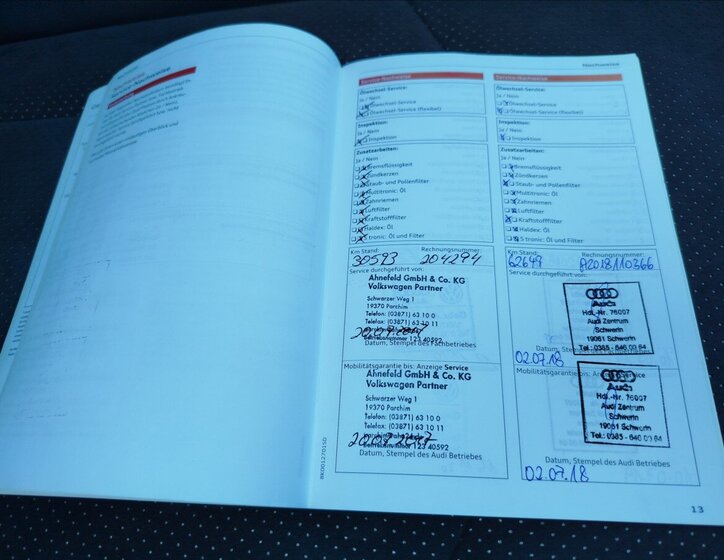 Service-Nachweise
Nachweise
Service-Nachweise
Ölwechsel-Service:
Ja / Nein
Ölwechsel-Service
Ölwechsel-Service (flexibel)
Inspektion:
Ja / Nein
Inspektion
Zusatzarbeiten:
Ja / Nein
Bremsflüssigkeit
Zündkerzen
Staub- und Pollenfilter
Multitronic: Öl
Zahnriemen
Luftfilter
Kraftstofffilter
Haldex: Öl
S tronic: Öl und Filter
Km Stand: Rechnungsnummer:
30593 204294
Service durchgeführt von:
Ahnefeld GmbH & Co. KG
Volkswagen Partner
Schwarzer Weg 1
19370 Parchim
Telefon: (03871) 63 10 0
Telefax: (03871) 63 10 11
Betriebsnummer 123 40592
Datum, Stempel des Fachbetriebes
Mobilitätsgarantie bis: Anzeige Service
Ahnefeld GmbH & Co. KG
Volkswagen Partner
Schwarzer Weg 1
19370 Parchim
Telefon: (03871) 63 10 0
Telefax: (03871) 63 10 11
123 40592
Datum, Stempel des Audi Betriebes
Service-Nachweise
Ölwechsel-Service:
Ja / Nein
Ölwechsel-Service
Ölwechsel-Service (flexibel)
Inspektion:
Ja / Nein
Inspektion
Zusatzarbeiten:
Ja / Nein
Bremsflüssigkeit
Zündkerzen
Staub- und Pollenfilter
Multitronic: Öl
Zahnriemen
Luftfilter
Kraftstofffilter
Haldex: Öl
S tronic: Öl und Filter
Km Stand: Rechnungsnummer:
62649 A2018110366
Service durchgeführt von:
Audi
Hdl.-Nr. 76007
Audi Zentrum
Schwerin
19061 Schwerin
Tel.: 0385 - 646 00 64
02.07.18
Mobilitätsgarantie bis: Anzeige Service
Audi
Hdl.-Nr. 76007
Audi Zentrum
Schwerin
19061 Schwerin
Tel.: 0385 - 646 00 64
Datum, Stempel des Audi Betriebes
02.07.18
13